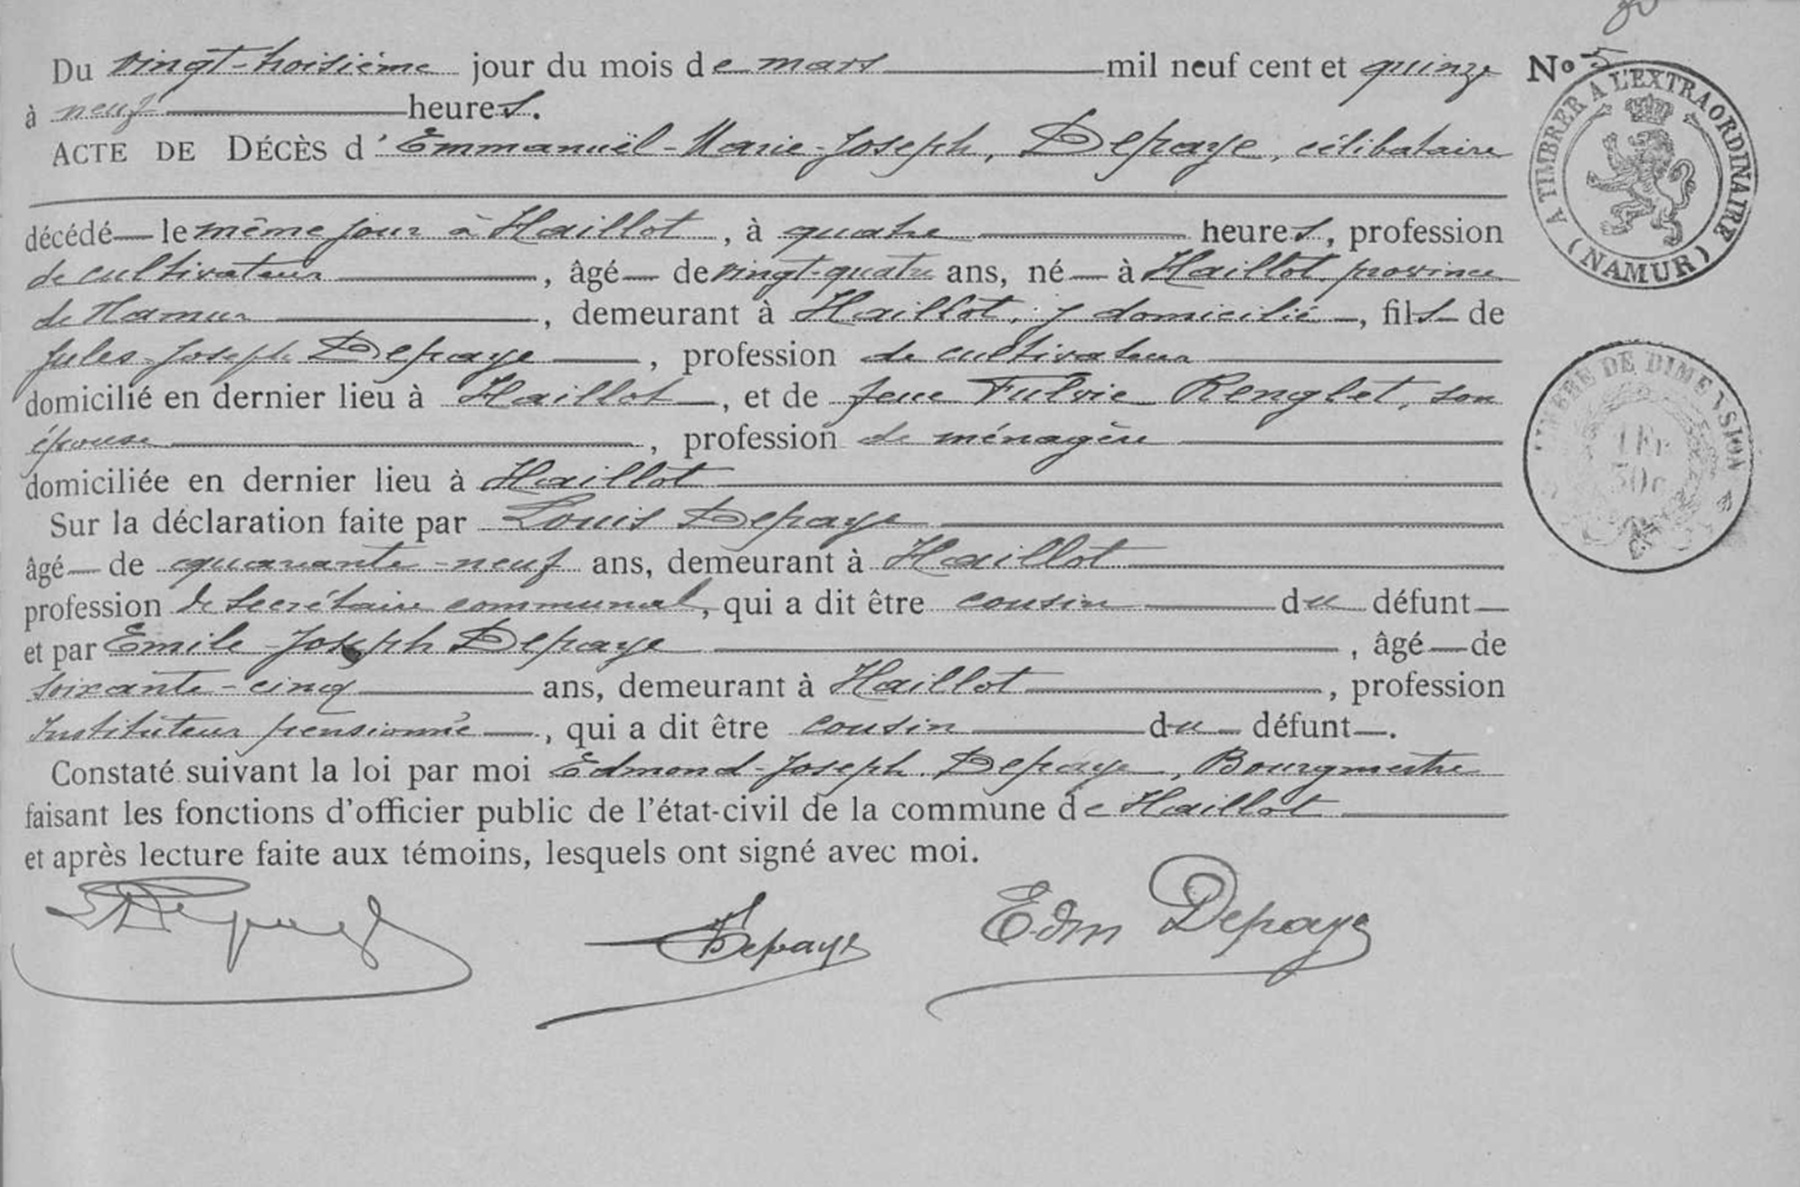 Du vingt-troisième jour du mois de mars mil neuf cent et quinze No 5
à neuf heures.
ACTE DE DÉCÈS d'Emmanuël-Marie-Joseph, Depaye, célibataire
décédé le même jour à Haillot, à quatre heures, profession
de cultivateur, âgé de vingt-quatre ans, né à Haillot, province
de Namur, demeurant à Haillot, y domicilié, fils de
Jules-Joseph Depaye, profession de cultivateur
domicilié en dernier lieu à Haillot, et de feue Fulvie Renglet, son
épouse, profession de ménagère
domiciliée en dernier lieu à Haillot
Sur la déclaration faite par Louis Depaye
âgé de quarante-neuf ans, demeurant à Haillot
profession de secrétaire communal, qui a dit être cousin du défunt
et par Emile-Joseph Depaye, âgé de
soixante-cinq ans, demeurant à Haillot, profession
Instituteur pensionné, qui a dit être cousin du défunt.
Constaté suivant la loi par moi Edmond-Joseph Depaye, Bourgmestre
faisant les fonctions d'officier public de l'état-civil de la commune de Haillot
et après lecture faite aux témoins, lesquels ont signé avec moi.
LDepaye Depaye Edm Depaye
A TIMBRER A L'EXTRAORDINAIRE
(NAMUR)
TIMBRE DE DIMENSION
1 Fr
30c